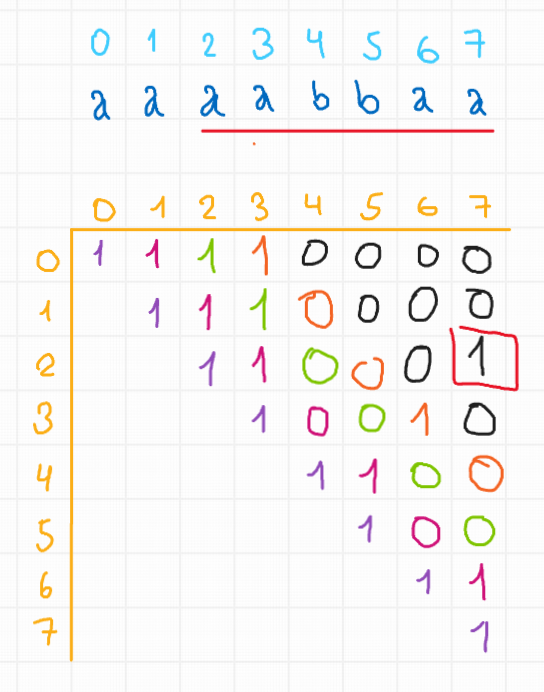 0 1 2 3 4 5 6 7
a a a a b b a a
0 1 2 3 4 5 6 7
0 1 1 1 1 0 0 0 0
1 1 1 1 0 0 0 0
2 1 1 0 0 0 1
3 1 0 0 1 0
4 1 1 0 0
5 1 0 0
6 1 1
7 1